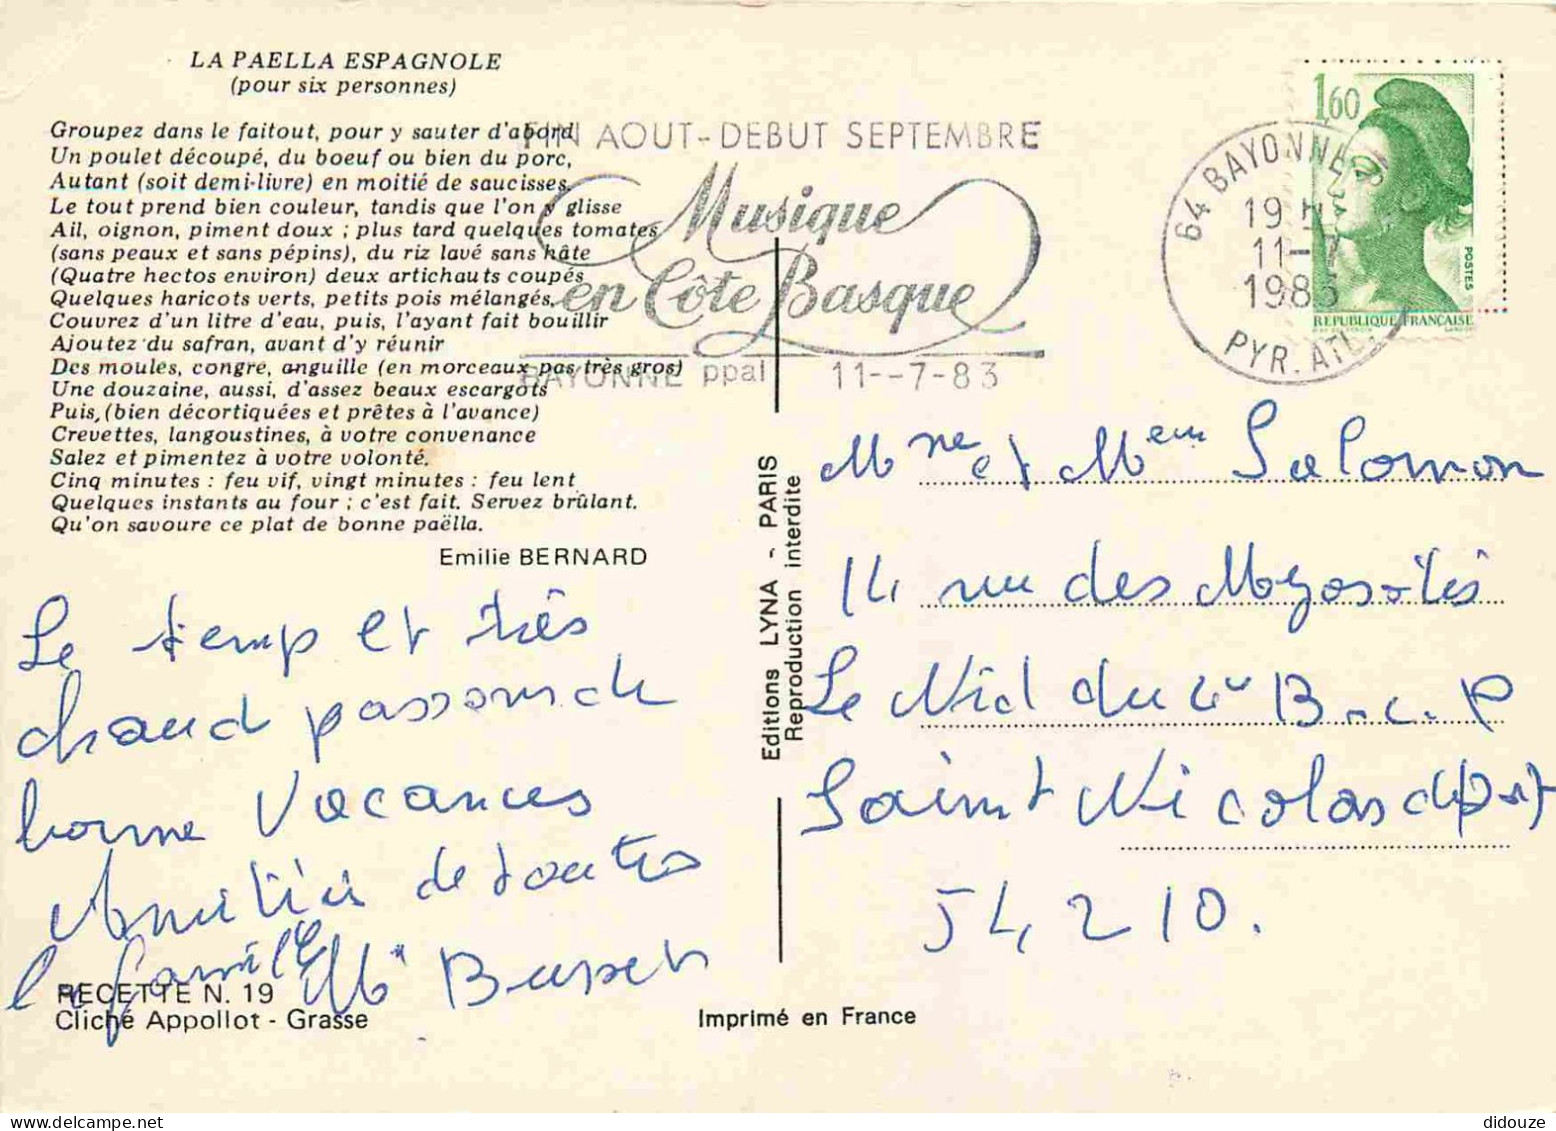 LA PAELLA ESPAGNOLE
(pour six personnes)
Groupez dans le faitout, pour y sauter d'abord
Un poulet découpé, du boeuf ou bien du porc,
Autant (soit demi-livre) en moitié de saucisses.
Le tout prend bien couleur, tandis que l'on y glisse
Ail, oignon, piment doux ; plus tard quelques tomates
(sans peaux et sans pépins), du riz lavé sans hâte
(Quatre hectos environ) deux artichauts coupés
Quelques haricots verts, petits pois mélangés.
Couvrez d'un litre d'eau, puis, l'ayant fait bouillir
Ajoutez du safran, avant d'y réunir
Des moules, congre, anguille (en morceaux pas très gros)
Une douzaine, aussi, d'assez beaux escargots
Puis, (bien décortiquées et prêtes à l'avance)
Crevettes, langoustines, à votre convenance
Salez et pimentez à votre volonté.
Cinq minutes : feu vif, vingt minutes : feu lent
Quelques instants au four ; c'est fait. Servez brûlant.
Qu'on savoure ce plat de bonne paëlla.
Emilie BERNARD
Le temp et très
chaud passons de
bonne vacances
Amitiés de toutes
la famille
RECETTE N. 19
Cliché Appollot - Grasse
FIN AOUT-DEBUT SEPTEMBRE
Musique
en Côte Basque
BAYONNE ppal 11--7-83
1,60
POSTES
REPUBLIQUE FRANCAISE
64 BAYONNE
19 H
11-7
1983
PYR. ATL.
Editions LYNA - PARIS
Reproduction interdite
Mme et Salomon
14 rue des Myosotis
Le Nid du B.c.p
Saint Nicolas de port
54210.
Imprimé en France
didouze